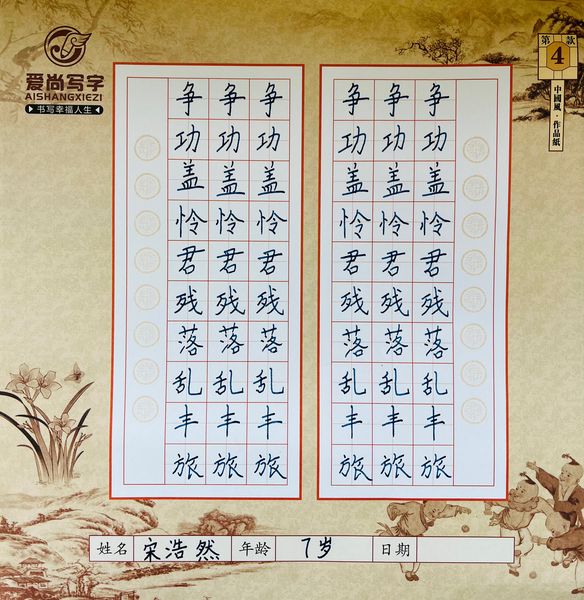 爱尚写字
AISHANGXIEZI
书写幸福人生
第款
4
中國風·作品紙
争争争 争争争
功功功 功功功
盖盖盖 盖盖盖
怜怜怜 怜怜怜
君君君 君君君
残残残 残残残
落落落 落落落
乱乱乱 乱乱乱
丰丰丰 丰丰丰
旅旅旅 旅旅旅
姓名 宋浩然 年龄 7岁 日期